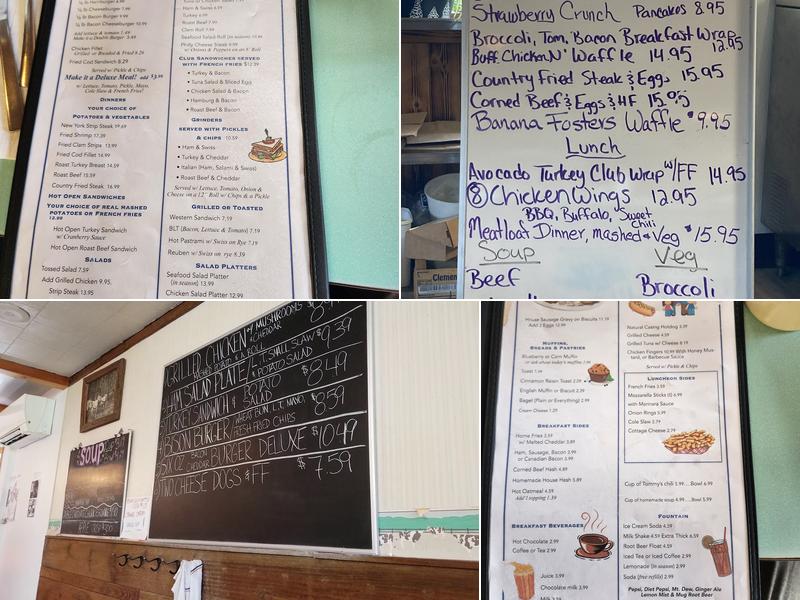 ¼ lb Cheeseburger 7.99
¼ lb Bacon Cheeseburger 10.99
Add lettuce & tomato 1.49
Make it a Double Burger 3.49
Chicken Fillet
Grilled or Breaded & Fried 8.29
Fried Cod Sandwich 8.29
Served w/ Pickle & Chips
Make it a Deluxe Meal! add $3.99
w/ Lettuce, Tomato, Pickle, Mayo,
Cole Slaw & French Fries!
DINNERS
YOUR CHOICE OF
POTATOES & VEGETABLES
New York Strip Steak 19.69
Fried Shrimp 17.39
Fried Clam Strips 13.99
Fried Cod Fillet 14.99
Roast Turkey Breast 14.59
Roast Beef 15.59
Country Fried Steak 16.99
HOT OPEN SANDWICHES
YOUR CHOICE OF REAL MASHED
POTATOES OR FRENCH FRIES
12.99
Hot Open Turkey Sandwich
w/ Cranberry Sauce
Hot Open Roast Beef Sandwich
SALADS
Tossed Salad 7.59
Add Grilled Chicken 9.95,
Strip Steak 13.95
Ham & Swiss 6.99
Turkey 6.99
Roast Beef 7.99
Clam Roll 7.99
Seafood Salad Roll (in season)
Philly Cheese Steak 9.99
w/ Onions & Peppers on an 8" Roll
CLUB SANDWICHES SERVED
WITH FRENCH FRIES $12.39
• Turkey & Bacon
• Tuna Salad & Sliced Egg
• Chicken Salad & Bacon
• Hamburg & Bacon
• Roast Beef & Bacon
GRINDERS
SERVED WITH PICKLES
& CHIPS 10.59
• Ham & Swiss
• Turkey & Cheddar
• Italian (Ham, Salami & Swiss)
• Roast Beef & Cheddar
Served w/ Lettuce, Tomato, Onion &
Cheese on a 12" Roll w/ Chips & a Pickle
GRILLED OR TOASTED
Western Sandwich 7.19
BLT (Bacon, Lettuce & Tomato) 7.19
Hot Pastrami w/ Swiss on Rye 7.19
Reuben w/ Swiss on rye 8.39
SALAD PLATTERS
Seafood Salad Platter
(in season) 13.99
Chicken Salad Platter 12.99
Strawberry Crunch Pancakes 8.95
Broccoli, Tom, Bacon Breakfast Wrap 12.95
Buff. Chicken N' Waffle 14.95
Country Fried Steak & Eggs 15.95
Corned Beef & Eggs & HF 15.95
Banana Fosters Waffle $9.95
Lunch
Avocado Turkey Club Wrap w/FF 14.95
(8) Chicken Wings 12.95
BBQ, Buffalo, Sweet Chili
Meatloaf Dinner, mashed & Veg $15.95
Soup Veg
Beef Broccoli
GRILLED CHICKEN w/ MUSHROOMS
& CHEDDAR
HAM SALAD PLATE w/ SMALL SLAW $9.39
& A ROLL & POTATO SALAD
SANDWICH & POTATO SALAD $8.49
BISON BURGER $8.59
FRESH FRIED CHIPS
6 OZ BACON CHEDDAR BURGER DELUXE $10.49
TWO CHEESE DOGS & FF $7.59
SOUP
House Sausage Gravy on Biscuits 11.19
Add 2 Eggs 12.99
MUFFINS,
BREADS & PASTRIES
Blueberry or Corn Muffin
or ask about today's muffins 2.99
Toast 1.99
Cinnamon Raisin Toast 2.29
English Muffin or Biscuit 2.39
Bagel (Plain or Everything) 2.99
Cream Cheese 1.29
BREAKFAST SIDES
Home Fries 3.59
w/ Melted Cheddar 3.89
Ham, Sausage, Bacon 3.99
or Canadian Bacon 3.99
Corned Beef Hash 4.89
Homemade House Hash 5.89
Hot Oatmeal 4.59
Add 1 topping 1.39
BREAKFAST BEVERAGES
Hot Chocolate 2.99
Coffee or Tea 2.99
Juice 3.99
Chocolate milk 3.99
Milk
Natural Casing Hotdog 3.39
Grilled Cheese 4.59
Grilled Tuna w/ Cheese 8.19
Chicken Fingers 10.99 With Honey Mus-
tard, or Barbecue Sauce
Served w/ Pickle & Chips
LUNCHEON SIDES
French Fries 3.59
Mozzarella Sticks (6) 6.99
with Marinara Sauce
Onion Rings 5.99
Cole Slaw 2.79
Cottage Cheese 2.79
Cup of Tommy's chili 5.99.... Bowl 6.99
Cup of homemade soup 4.99... Bowl 5.99
FOUNTAIN
Ice Cream Soda 4.59
Milk Shake 4.59 Extra Thick 6.59
Root Beer Float 4.59
Iced Tea or Iced Coffee 2.99
Lemonade (in season) 2.99
Soda (free refills) 2.99
Pepsi, Diet Pepsi, Mt. Dew, Ginger Ale
Lemon Mist & Mug Root Beer